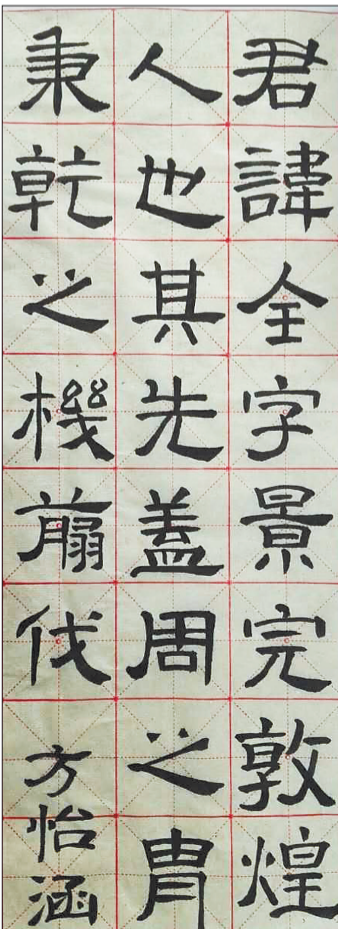 君諱全字景完敦煌
人也其先蓋周之胄
秉乾之機翦伐
方怡涵